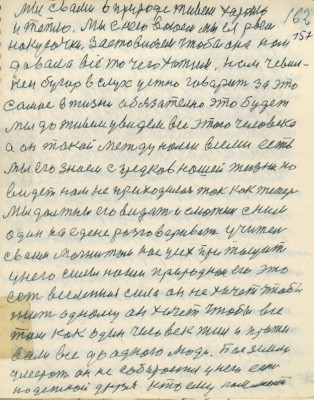 мы с вами в природе живем хорошо 162
и тепло. Мы с него всеми мы ея рвем 157
на кусочки. Заставляем чтобы она нам
давала все то чего хотим, и сем
бугор в слух устно говорит за это
самое в жизни обязательно это будет
мы доживем увидем все этого человека
а он такой между нами всеми есть
мы его знаем с предков нашей жизни но
видеть нам не приходилось так как теперь
Мы должны его видать и смотим с ним
один на едене розговаривать учител
с вами магнитом нас усех притащит
у него сила нами природная его это
сот вселенная сила он не хочет чтобы
жит одному он хочет чтобы все
там как один человек жил и прожи
вали все до одного люди. По земли
умерат он не собирается у него есть
надежной друзя кто ему поможет